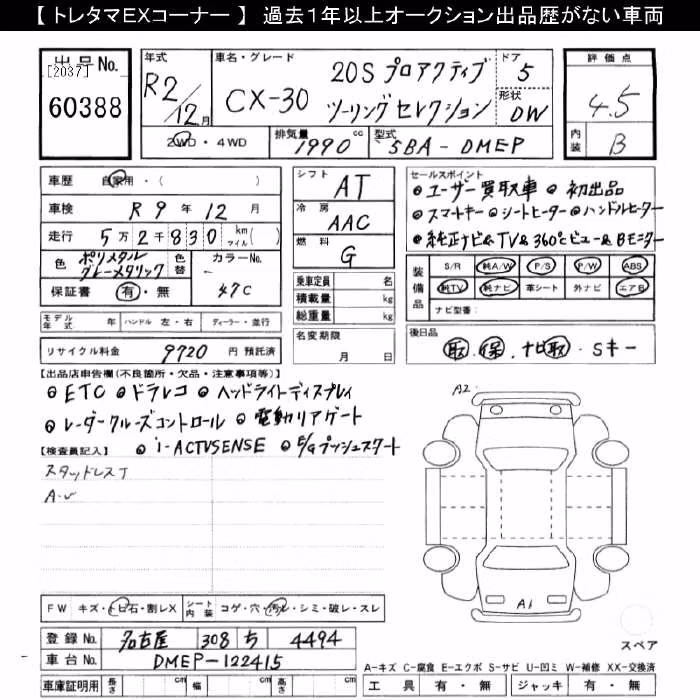 【 トレタマEXコーナー 】 過去1年以上オークション出品歴がない車両
出品No.
[2037]
60388
年式
R2/12月
車名・グレード
CX-30
20S プロアクティブ
ツーリング セレクション
ドア
5
形状
DW
評価点
4.5
内装
B
2WD・4WD
排気量
1990 cc
型式
5BA-DMEP
車歴 自家用・( )
車検 R 9 年 12 月
走行 5万2千830 km マイル( )
色 ポリメタルグレーメタリック 色替 - カラーNo. 47C
保証書 有・無
モデル年式 年 ハンドル 左・右 ディーラー・並行
リサイクル料金 9720 円 預託済
シフト AT
冷房 AAC
燃料 G
乗車定員 名
積載量 kg
総重量 kg
名変期限
月 日
セールスポイント
ユーザー買取車 初出品
スマートキー シートヒーター ハンドルヒーター
純正ナビ&TV&360°ビュー&Bモニター
装備品
S/R 純A/W P/S P/W ABS
純TV 純ナビ 革シート 外ナビ エアB
ナビ型番:
後日品
取、保、ナビ取・Sキー
【出品店申告欄(不良箇所・欠品・注意事項等)】
ETC ドラレコ ヘッドライトディスプレイ
レーダークルーズコントロール 電動リアゲート
i-ACTVSENSE E/Gプッシュスタート
【検査員記入】
スタッドレスT
A2
A1
FW キズ・トビ石・割レX シート内装 コゲ・穴・汚レ・シミ・破レ・スレ
登録No. 名古屋 308 ち 4494
車台No. DMEP-122415
車庫証明用 長さ cm 幅 cm 高さ cm
スペア
A-キズ C-腐食 E-エクボ S-サビ U-凹ミ W-補修 XX-交換済
工具 有・無 ジャッキ 有・無